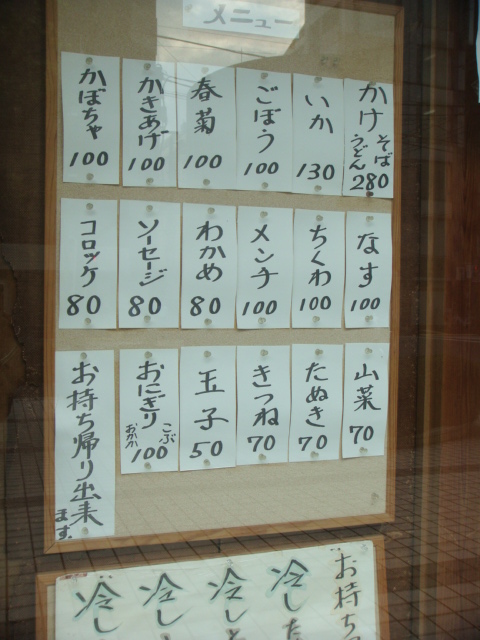 メニュー
かけ そば うどん 280
いか 130
ごぼう 100
春菊 100
かきあげ 100
かぼちゃ 100
なす 100
ちくわ 100
メンチ 100
わかめ 80
ソーセージ 80
コロッケ 80
山菜 70
たぬき 70
きつね 70
玉子 50
おにぎり こぶ おかか 100
お持ち帰り出来ます。
お持ち
冷した
冷し
冷し
冷し